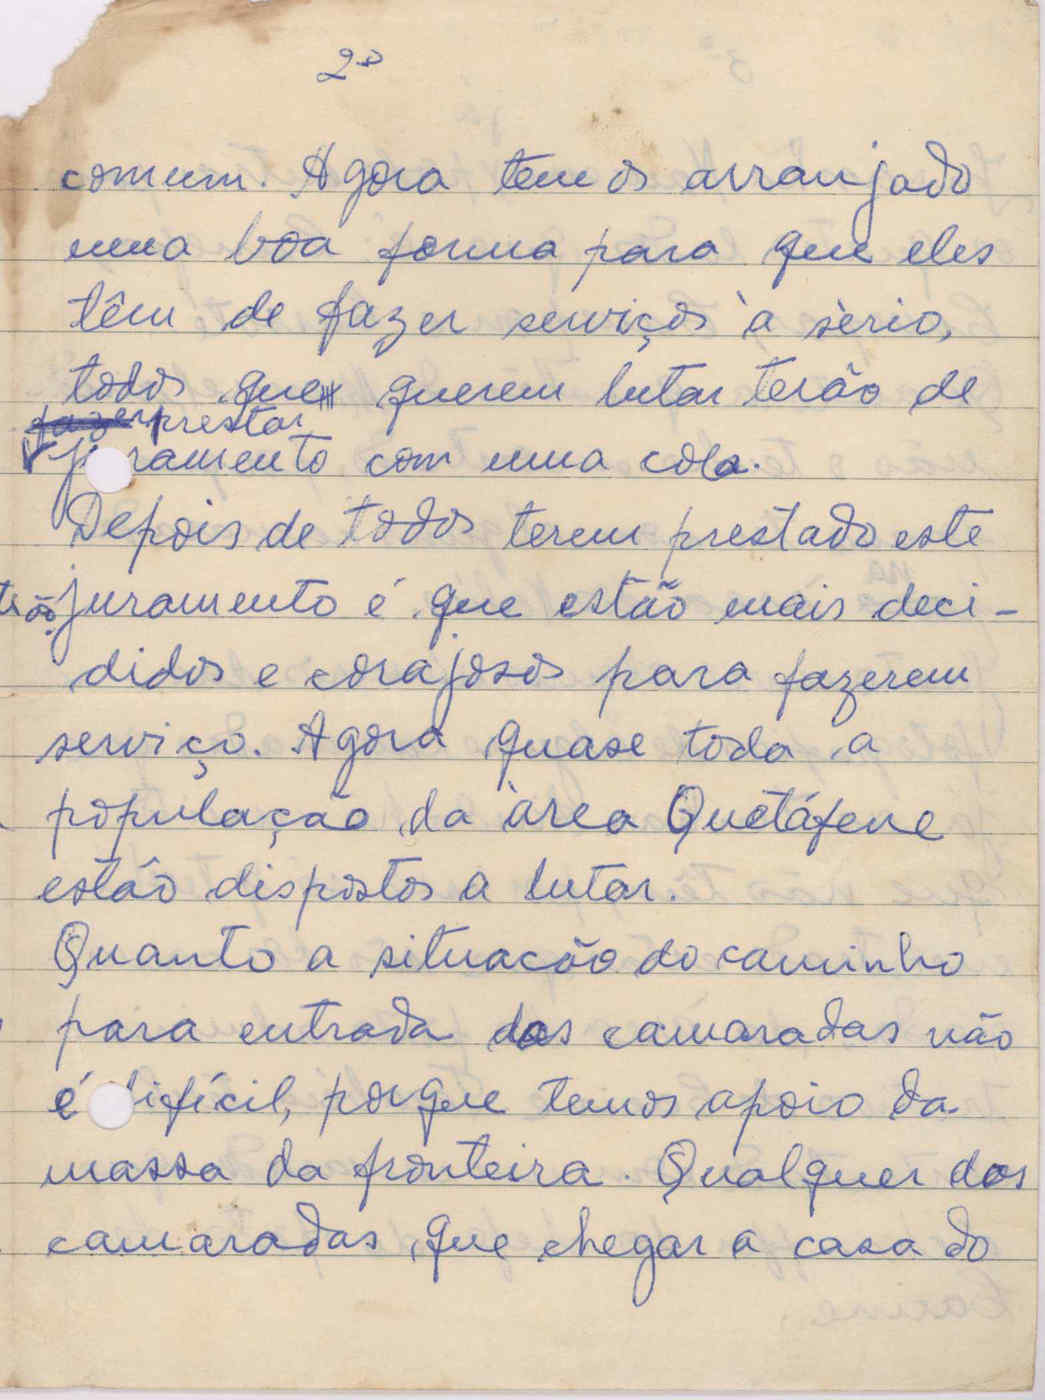 2º
comum. Agora temos arranjado
uma boa forma para que eles
têm de fazer serviços à sèrio,
todos que querem lutar terão de
fazer prestar
juramento com uma cola.
Depois de todos terem prestado este
juramento é que estão mais deci-
didos e corajosos para fazerem
serviço. Agora quase toda a
população da àrea Quetáfene
estão dispostos a lutar.
Quanto a situacão do caminho
para entrada dos camaradas não
é difícil, porque temos apoio da
massa da fronteira. Qualquer dos
camaradas que chegar a casa do